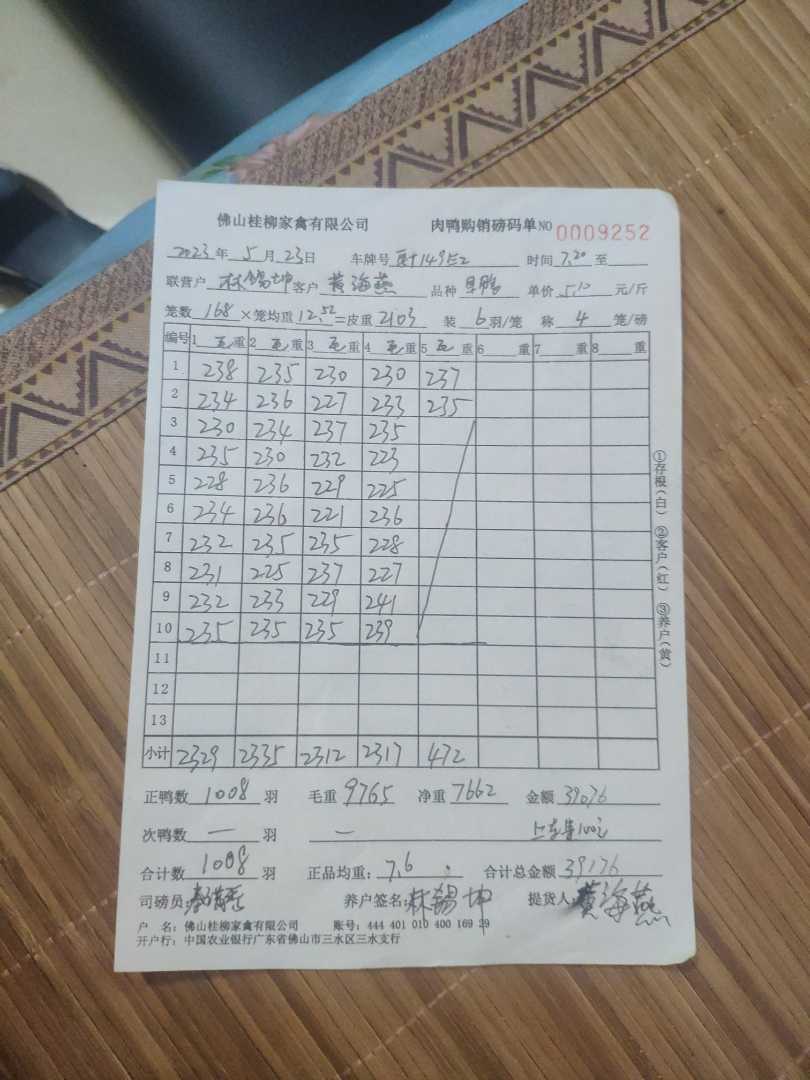 佛山桂柳家禽有限公司 肉鸭购销磅码单 NO 0009252
2023年 5月 23日 车牌号 149 时间 7.20 至
联营户 林锡坤 客户 黄海燕 品种 单价 5.10 元/斤
笼数 168 ×笼均重 12.52 =皮重 2103 装 6 羽/笼 称 4 笼/磅
编号 1 毛重 2 毛重 3 毛重 4 毛重 5 毛重 6 重 7 重 8 重
1 238 235 230 230 237
2 234 236 227 233 235
3 230 234 237 235
4 235 230 232 223
5 228 236 229 225
6 234 236 221 236
7 232 235 235 228
8 231 225 237 227
9 232 233 229 241
10 235 235 235 239
11
12
13
小计 2329 2335 2312 2317 472
正鸭数 1008 羽 毛重 9765 净重 7662 金额 39076
次鸭数 — 羽 — 上车费100元
合计数 1008 羽 正品均重: 7.6 合计总金额 39176
司磅员 养户签名: 林锡坤 提货人 黄海燕
户 名: 佛山桂柳家禽有限公司 账号: 444 401 010 400 169 29
开户行: 中国农业银行广东省佛山市三水区三水支行
①存根(白) ②客户(红) ③养户(黄)